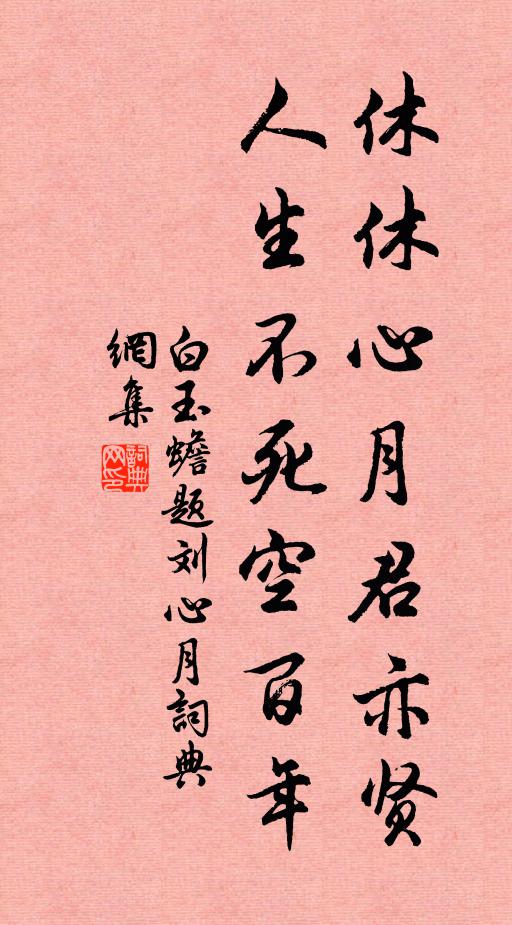 休休心月君亦贤
人生不死空百年
白玉蟾题刘心月詞典
網集
詞典
网印